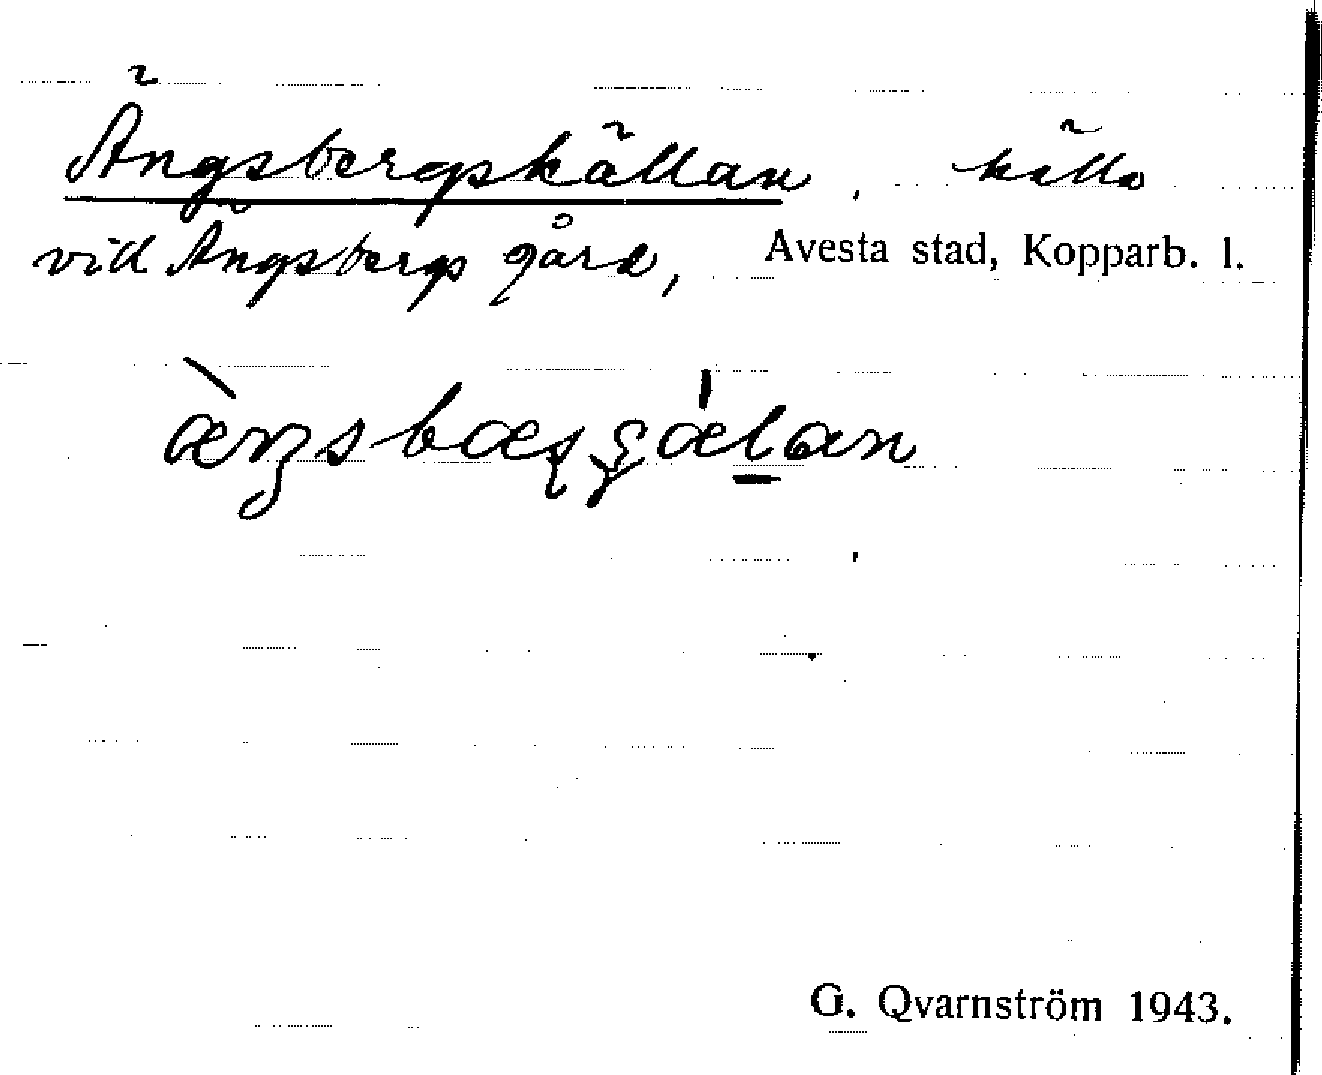 Ängsbergskällan, källa
vid Ängsbergs gård, Avesta stad, Kopparb. l.
G. Qvarnström 1943.